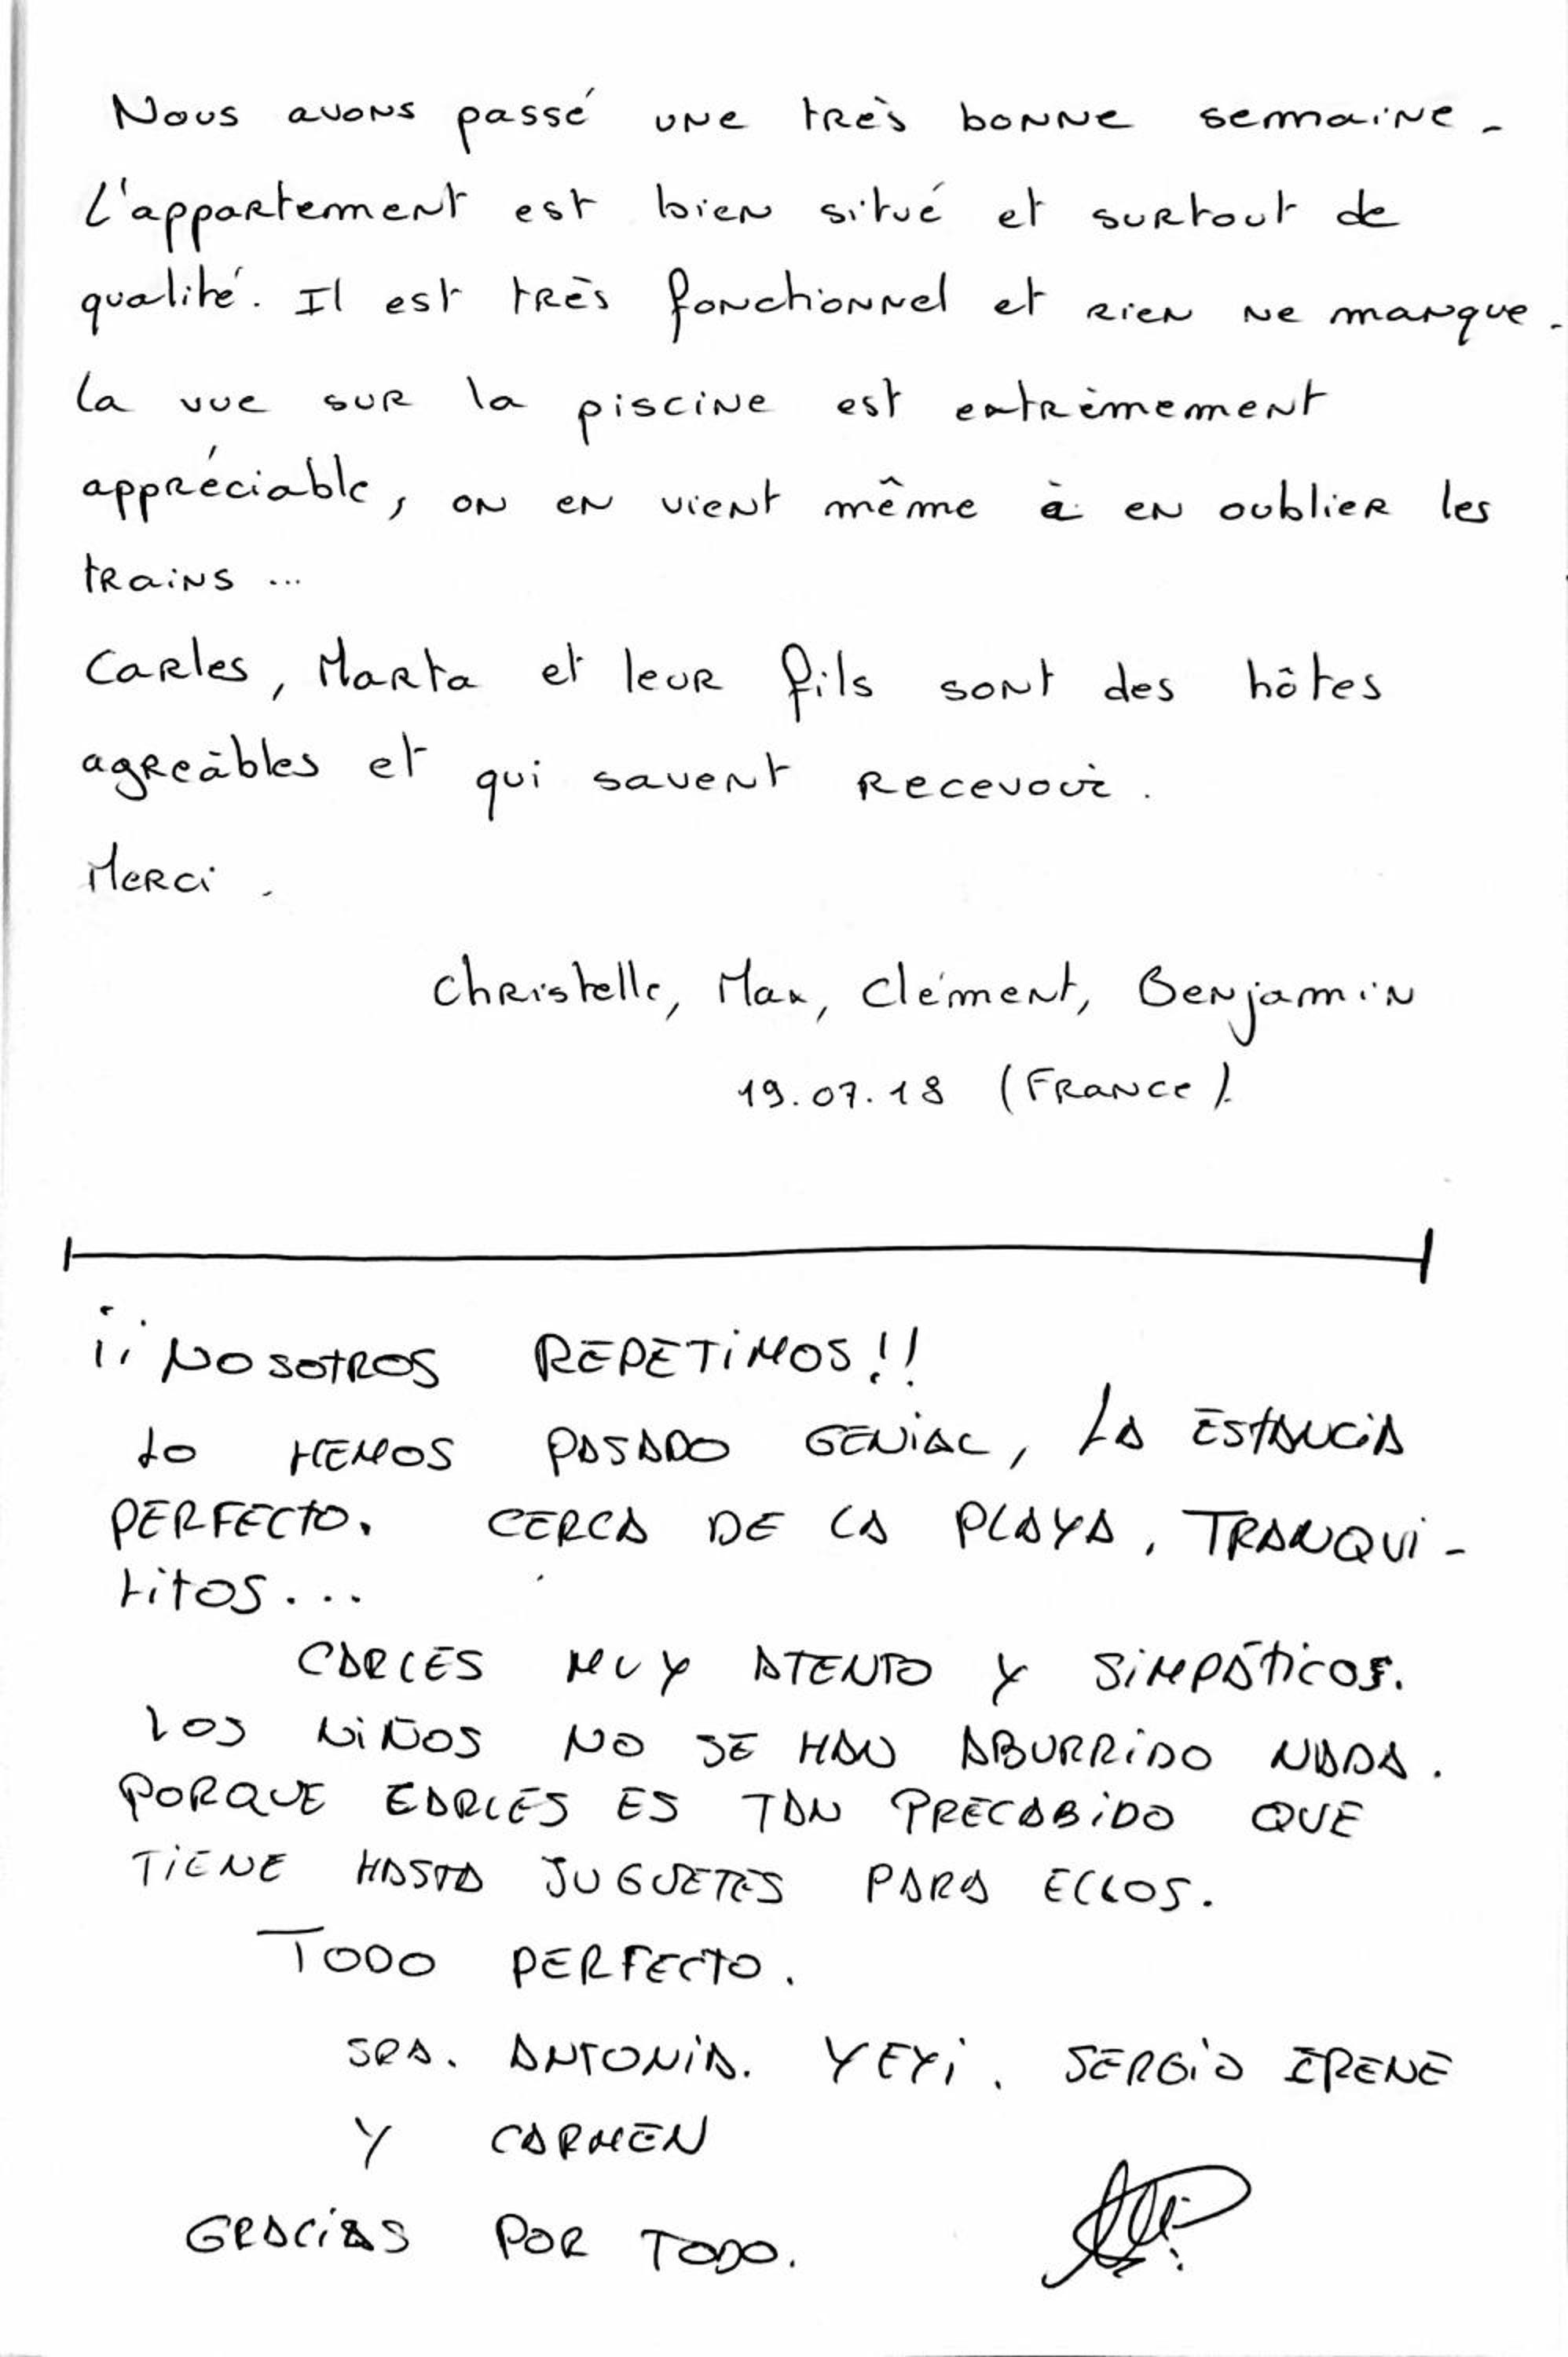 Nous avons passé une très bonne semaine.
L'appartement est bien situé et surtout de
qualité. Il est très fonctionnel et rien ne manque.
La vue sur la piscine est extrèmement
appréciable, on en vient même à en oublier les
trains ...
Carles, Marta et leur fils sont des hôtes
agreábles et qui savent recevoir.
Merci.
Christelle, Max, Clément, Benjamin
19.07.18 (France).
¡¡NOSOTROS REPETIMOS!!
LO HEMOS PASADO GENIAL, LA ESTANCIA
PERFECTO. CERCA DE LA PLAYA, TRANQUI-
LITOS...
CARLES MUY ATENTO Y SIMPÁTICOS.
LOS NIÑOS NO SE HAN ABURRIDO NADA.
PORQUE CARLES ES TAN PRECABIDO QUE
TIENE HASTA JUGUETES PARA ELLOS.
TODO PERFECTO.
SRA. ANTONIA. YEYI. SERGIO IRENE
Y CARMEN
GRACIAS POR TODO.